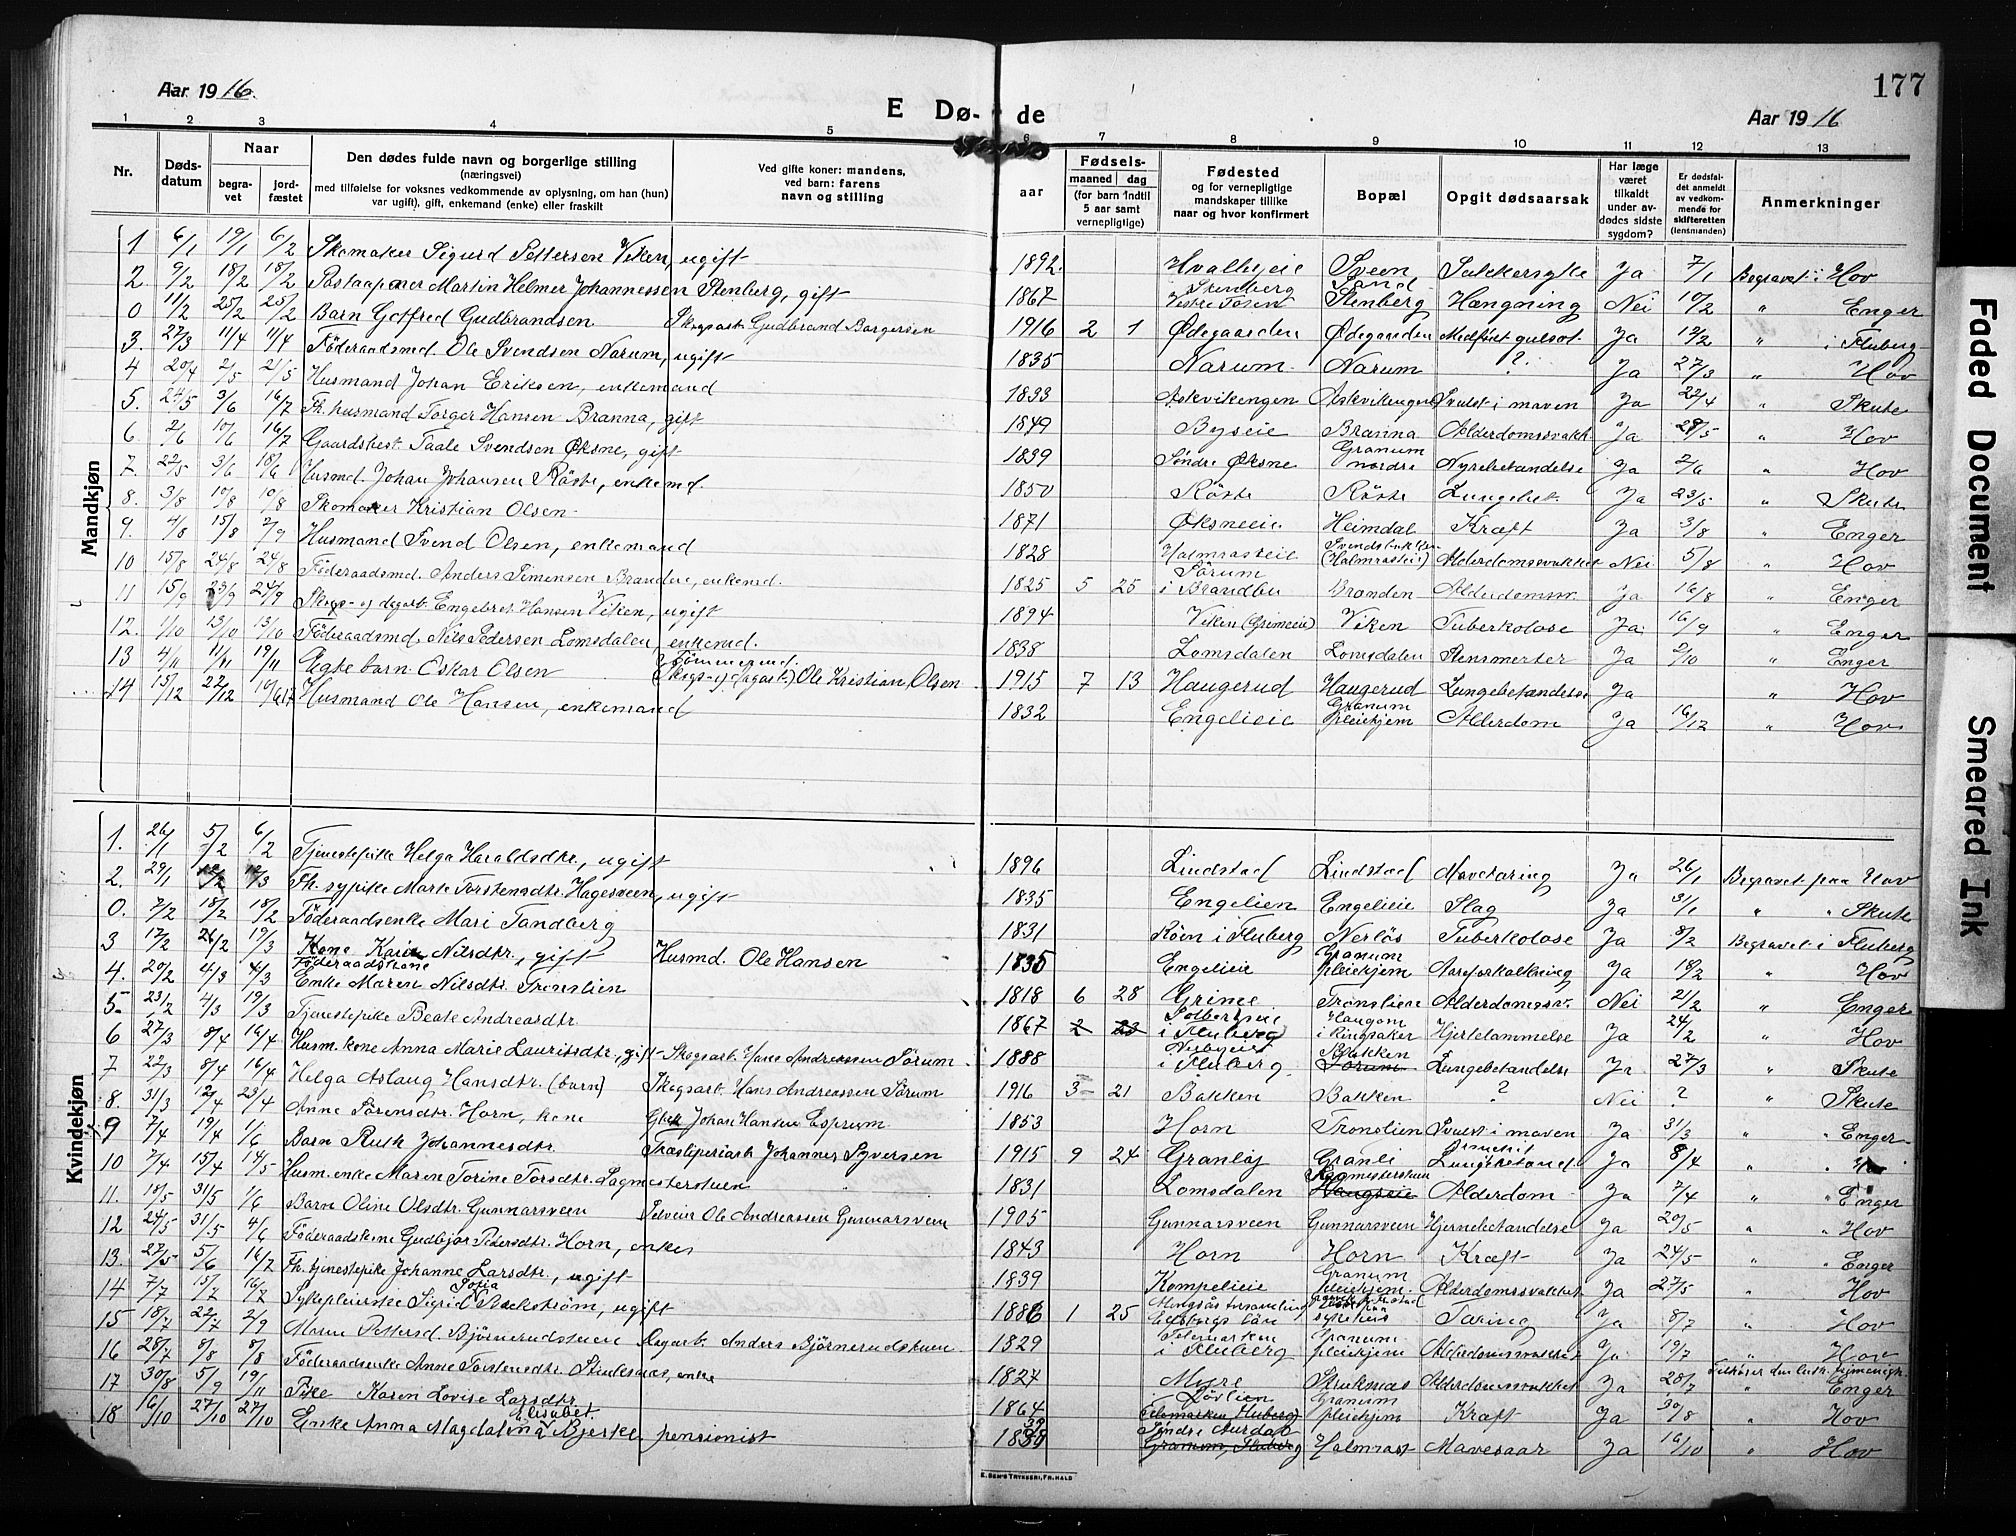 177
Aar 1916.
E Dø-
de
Aar 1916
1 2 3 4 5 6 7 8 9 10 11 12 13
Nr.
Døds-
datum
Naar
begra-
vet
jord-
fæstet
Den dødes fulde navn og borgerlige stilling
(næringsvei)
med tilføielse for voksnes vedkommende av oplysning, om han (hun)
var ugift), gift, enkemand (enke) eller fraskilt
Ved gifte koner: mandens,
ved barn: farens
navn og stilling
aar
Fødsels-
maaned dag
(for barn indtil
5 aar samt
vernepligtige)
Fødested
og for vernepligtige
mandskaper tillike
naar og hvor konfirmert
Bopæl
Opgit dødsaarsak
Har læge
været
tilkaldt
under av-
dødes sidste
sygdom?
Er dødsfal-
det anmeldt
av vedkom-
mende for
skifteretten
(lensmanden)
Anmerkninger
Mandkjøn
1 6/1 19/1 6/2 Skomaker Sigurd Pettersen Viken, ugift 1892 Hvalbyeie Sveen, Sand Sukkersyke Ja 7/1 Begravet i Hov
2 9/2 18/2 18/2 Postaapner Martin Helmer Johannessen Stenberg, gift 1867 Stenberg Vestre Toten Stenberg Hængning Nei 10/2 " Enger
0 11/2 25/2 25/2 Barn Gotfred Gudbrandsen Skogsarb. Gudbrand Borgersen 1916 2 1 Ødegaarden Ødegaarden Medfødt gulsot. Ja 12/2 " i Fluberg
3. 27/3 11/4 11/4 Föderaadsmd. Ole Svendsen Narum, ugift 1835 Narum Narum ? Ja 27/3 " Hov
4 20/4 2/5 2/5 Husmand Johan Eriksen, enkemand 1833 Askvikengen Askvikengen Svulst i maven Ja 22/4 " Skute
5. 24/5 3/6 16/7 Fh. husmand Torger Hansen Branna, gift 1849 Byseie Branna Alderdomssvakh. Ja 28/5 " Hov
6. 2/6 10/6 16/7 Gaardsbest. Taale Svendsen Øksne, gift 1839 Söndre Øksne Granum nordre Nyrebetændelse Ja 2/6 " Hov
7. 22/5 3/6 18/6 Husmd. Johan Johansen Röste, enkemd. 1850 Röste Röste Lungebet. Ja 23/5 " Skute
8. 3/8 10/8 10/8 Skomaker Kristian Olsen 1871 Øksneeie Heimdal Kræft Ja 3/8 " Enger
9. 4/8 15/8 2/9 Husmand Svend Olsen, enkemand 1828 Halmrasteie Svendsbakken (Halmrasteie) Alderdomssvakhet Nei 5/8 " Hov
10 15/8 24/8 24/8 Föderaadsmd. Anders Simensen Branden, enkemd. 1825 5 25 Sörum i Brandbu Branden Alderdomssv. Ja 16/8 " Enger
11 15/9 23/9 24/9 Skogs- og dagarb. Engebret Hansen Viken, ugift 1894 Viken (Grimeeie) Viken Tuberkolose Ja 16/9 " Enger
12. 1/10 13/10 13/10 Föderaadsmd. Nils Pedersen Lomsdalen, enkemd. 1838 Lomsdalen Lomsdalen Stensmerter Ja 2/10 " Enger
13 4/11 11/11 19/11 Egte barn. Oskar Olsen Tömmermd. (Skogs- og dagarb.) Ole Kristian Olsen 1915 7 13 Haugerud Haugerud Lungebetændelse Ja " Hov
14 15/12 22/12 Husmand Ole Hansen, enkemand 1832 Engelieie Granum pleiehjem Alderdom Ja 16/12 " Hov
Kvindekjøn
1. 26/1 5/2 6/2 Tjenestepike Helga Haraldsdtr., ugift 1896 Lindstad Lindstad Mavetæring Ja 26/1 Begravet paa Hov
2. 29/1 12/2 12/3 Fh. sypike Marte Torstensdtr. Hagesveen, ugift 1835 Engelien Engelieie Slag Ja 31/1 " " Skute
0. 7/2 18/2 18/2 Föderaadsenke Mari Sandberg 1831 Röen i Fluberg Nerlös Tuberkolose Ja 8/2 Begravet i Fluberg
3 17/2 26/2 19/3 Kone Kari Nilsdtr., gift Husmd. Ole Hansen 1835 Engelieie Granum pleiehjem Aareforkalkning Ja 18/2 " Hov
4. 20/2 4/3 4/3 Föderaadskone Enke Maren Nilsdtr. Tronslien 1818 6 28 Grime Tronslien Alderdomssv. Nei 21/2 " Enger
5. 23/2 4/3 19/3 Tjenestepike Beate Andreasdtr. 1867 2 23 Solbergeie i Fluberg Haugom i Ringsaker Hjertelammelse Ja 24/2 " Hov
6 27/3 8/4 16/4 Husm.kone Anna Marie Lauritsdtr., gift Skogsarb. Hans Andreassen Sörum 1888 i Fluberg Bakken Sörum Lungebetændelse Ja 27/3 " Skute
7 22/3 8/4 16/4 Helga Aslaug Hansdtr. (barn) Skogsarb. Hans Andreassen Sörum 1916 3 21 Bakken Bakken ? Nei ? " Skute
8. 31/3 12/4 23/4 Anne Sörensdtr. Horn, kone Johan Hansen Esprum 1853 Horn Tronslien Svulst i maven Ja 31/3 " Enger
9 7/4 19/4 1/6 Barn Ruth Johannesdtr. Johannes Syversen 1915 9 24 Granli Granli Lungebetænd. Ja 8/4 "
10 7/4 15/4 14/5 Husm.enke Maren Torine Torsdtr. Lagmesterstuen 1831 Lomsdalen Lagmesterstuen Haugseie Alderdom Ja 7/4 " " Enger
11. 18/5 31/5 1/6 Barn Oline Olsdtr. Gunnarsveen Selveier Ole Andreassen Gunnarsveen 1905 Gunnarsveen Gunnarsveen Hjernebetændelse Ja 20/5 " Hov
12 24/5 31/5 4/6 Föderaadskone Gudbjör Pedersdtr. Horn, enke 1843 Horn Horn Kræft Ja 24/5 " Enger
13. 27/5 5/6 16/7 Fh. tjenestepike Johanne Larsdtr., ugift 1839 Kompelieie Granum pleiehjem. Alderdomssvakhet Ja 27/5 " Hov
14 7/7 15/7 16/7 Sykepleierske Sigrid Sofia Backström, ugift 1886 1 25 sykehus Tæring Ja 8/7 " Hov
15 18/7 22/7 2/9 Maren Pettersd. Björnerudstuen Dagarb. Anders Björnerudstuen 1829 Selemarken i Fluberg Granum pleiehjem Alderdomssvakhet Ja 19/7 " Hov
16 28/7 8/8 8/8 Föderaadsenke Anne Torstensdtr. Stuksnæs, enke 1824 Myre Stuksnæs Alderdomssvakhet Ja 28/7 " Enger
17 30/8 5/9 19/11 Pike Karen Lovise Larsdtr. 1864 Lövlien Granum pleiehjem Kræft Ja 30/8 " Hov
18 16/10 27/10 27/10 Enke Anna Magdalena Elisabet Bjerke, pensionist 1830 Söndre Aurdal Granum, Fluberg Halmrast Mavesaar Ja 16/10 " Hov
E. SEM'S TRYKKERI, FR.HALD
Faded Document
Smeared Ink